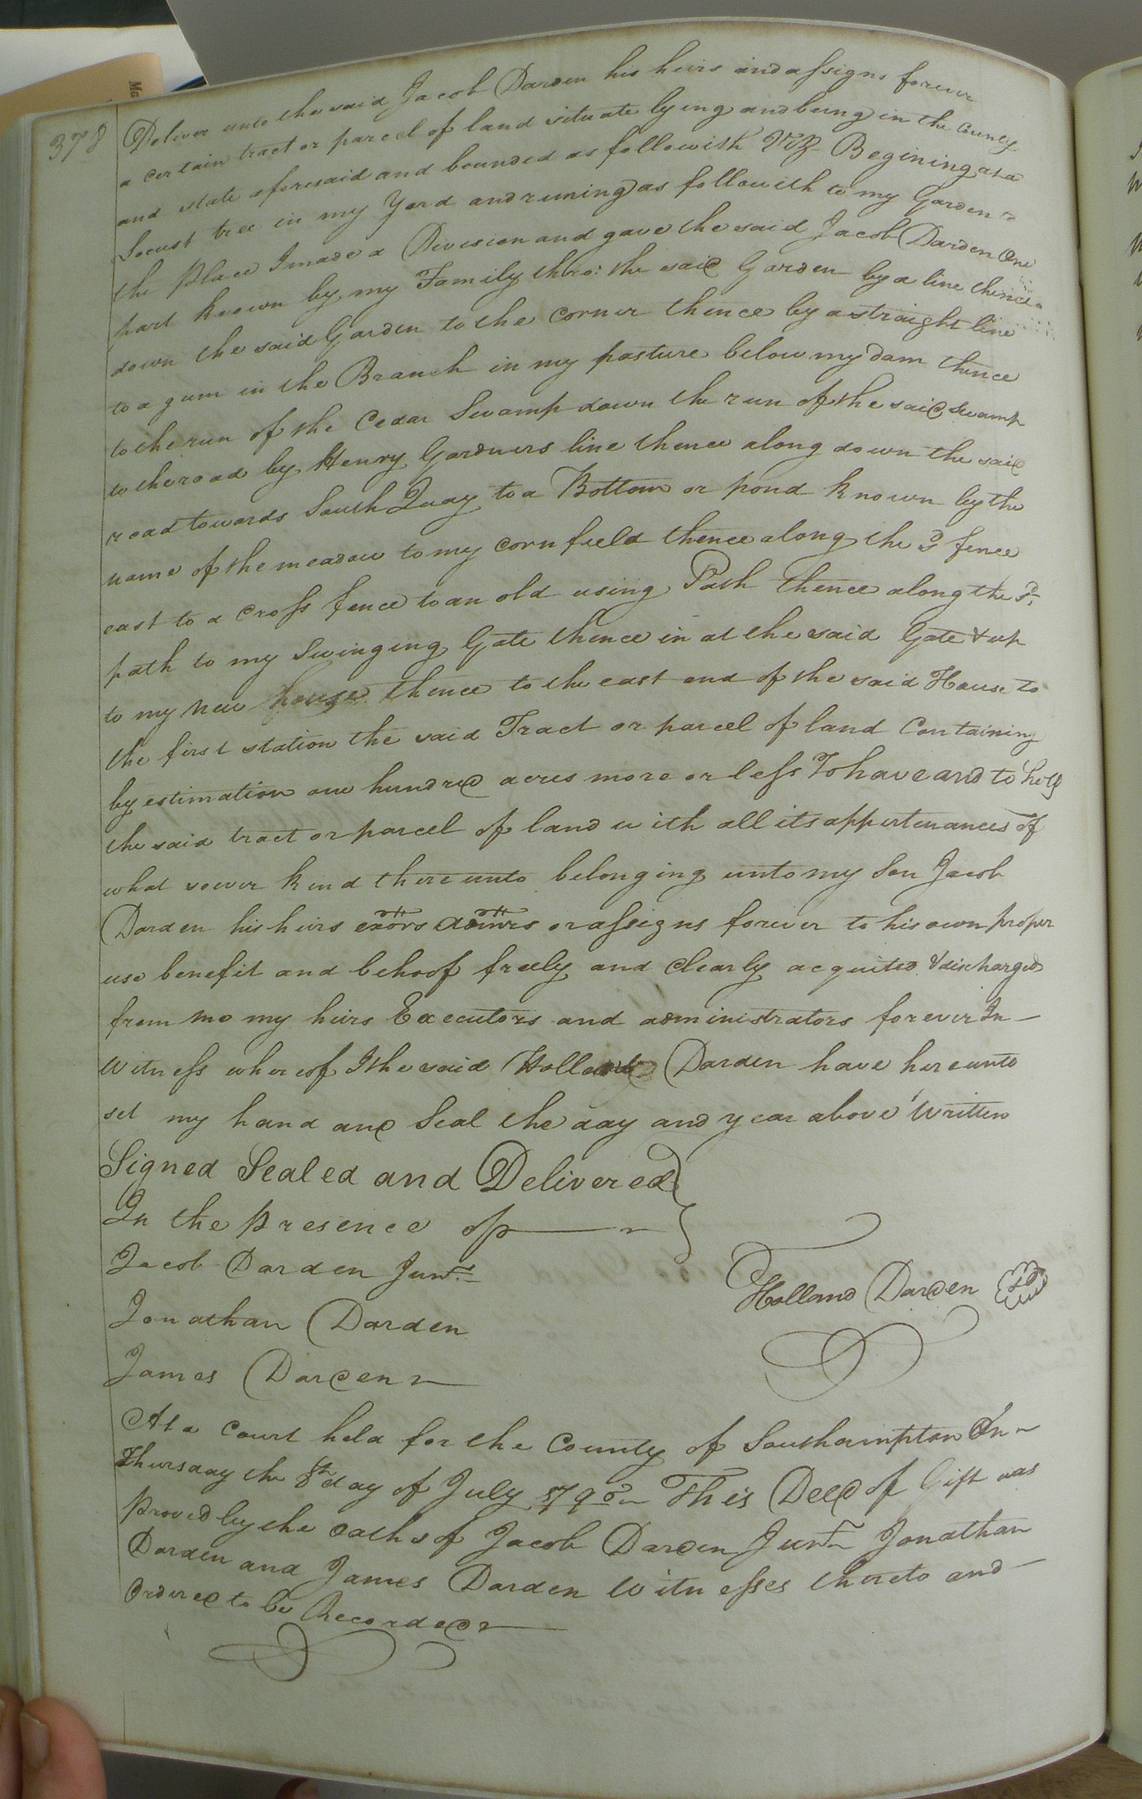 378
Deliver unto the said Jacob Darden his heirs and assigns forever
a certain tract or parcel of land situate lying and being in the County
and state aforesaid and bounded as followith Viz Begining at a
Locust tree in my Yard and runing as followith to my Garden to
the Place I made a Division and gave the said Jacob Darden One
part known by my Family thro: the said Garden by a line thence
down the said Garden to the corner thence by a straight line
to a gum in the Branch in my pasture below my dam thence
to the run of the Cedar Swamp down the run of the said Swamp
to the road by Henry Gardners line thence along down the said
road towards South Quay to a Bottom or pond known by the
name of the meadow to my cornfield thence along the sd fence
east to a cross fence to an old using Path thence along the sd
path to my Swinging Gate thence in at the said Gate & up
to my new house thence to the east end of the said House to
the first station the said Tract or parcel of land Containing
by estimation one hundred acres more or less To have and to hold
the said tract or parcel of land with all its appertenances of
what soever kind there unto belonging unto my Son Jacob
Darden his heirs exors admrs or assigns forever to his own proper
use benefit and behoof freely and clearly acquited & discharged
from me my heirs Executors and administrators forever In
Witness whereof I the said Holland Darden have hereunto
set my hand and Seal the day and year above Written
Signed Sealed and Delivered
In the presence of
Jacob Darden Junr.
Jonathan Darden
Holland Darden LS
James Darden
At a Court held for the County of Southampton On
Thursday the 8th day of July 1790 This Deed of Gift was
Proved by the oaths of Jacob Darden Junr Jonathan
Darden and James Darden Witnesses thereto and
Ordered to be Recorded